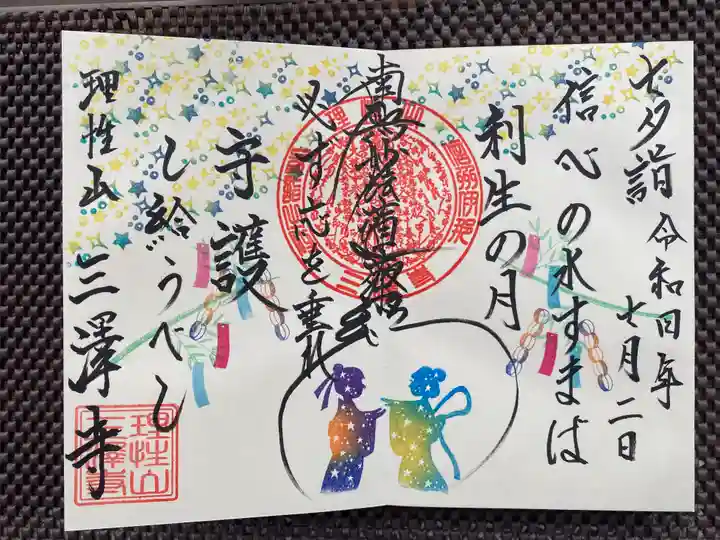 七夕詣
令和四年
七月二日
信心の水すまは
利生の月
南無妙法蓮華経
必す応を垂れ
守護
し給うべし
理性山
三澤寺
理性山
三澤寺